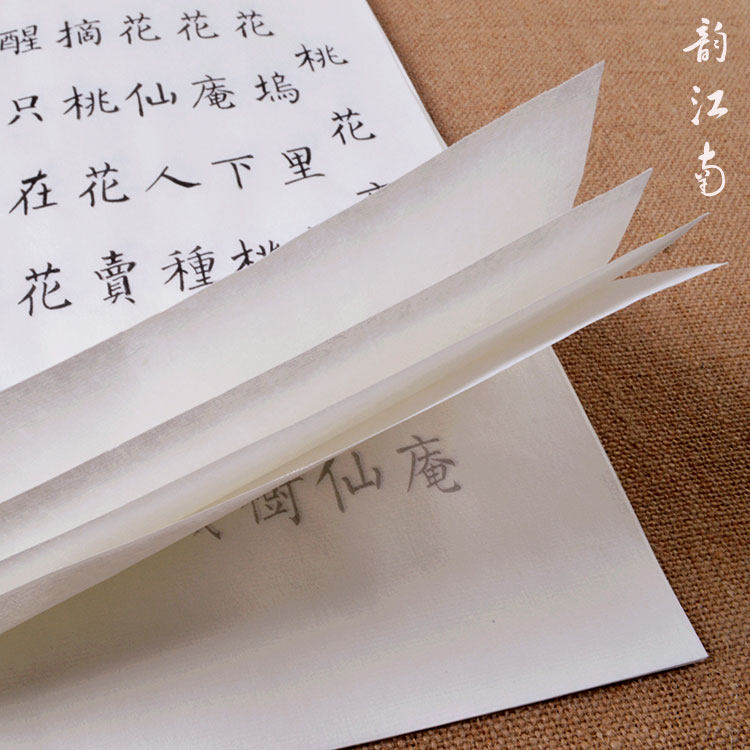 桃花
花塢里
花庵下桃
花仙人種
摘桃花賣
醒只在花
庵
仙
韵江南